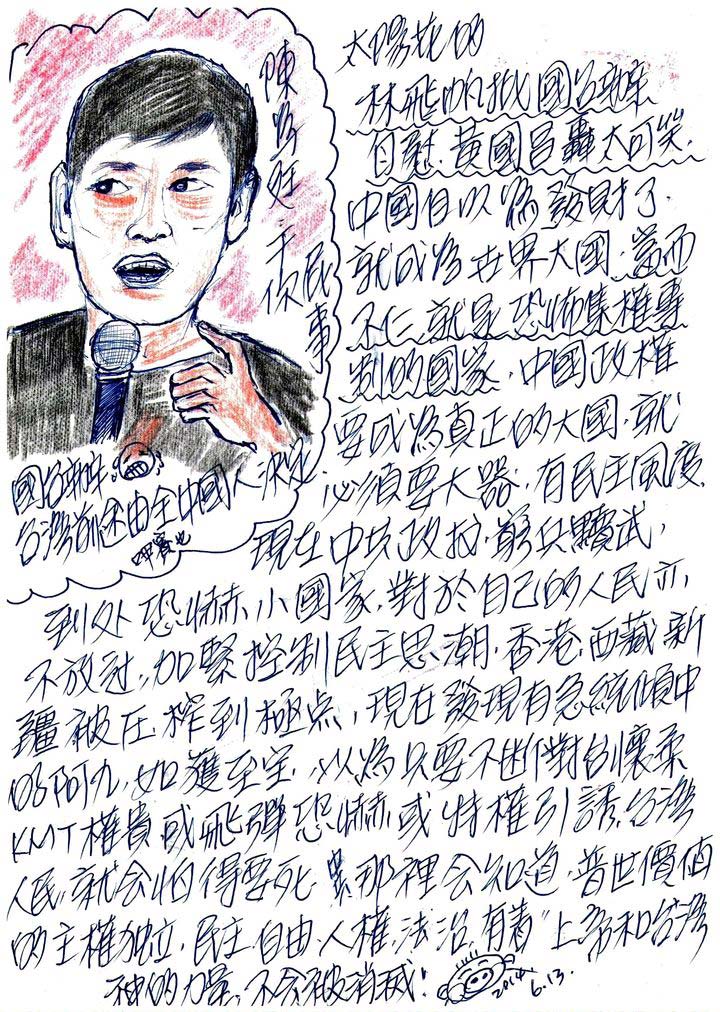 陳為廷:干你
民事
國台辦:
台灣前途由全中國人決定
太陽花的
林飛帆批國台辦
自慰,黃國昌轟太可笑,
中國自以為發財了,
就成為世界大國,富而
不仁,就是恐怖集權專
制的國家,中國政權
要成為真正的大國,就
必須要大器,有民主風度,
現在中共政權,窮兵黷武,
到处恐嚇小國家,對於自己的人民亦
不放过,加緊控制民主思潮,香港,西藏新
疆被压榨到極点,現在發現有急統傾中
的阿九,如獲至宝,以為只要不断對台懷柔
KMT權貴或飛彈恐嚇或特權引誘,台灣
人民,就会怕得要死,那裡会知道,普世價值
的主權独立,民主,自由,人權,法治,有着"上帝和台灣
神的力量,不会被消滅!
2014,
6.13.